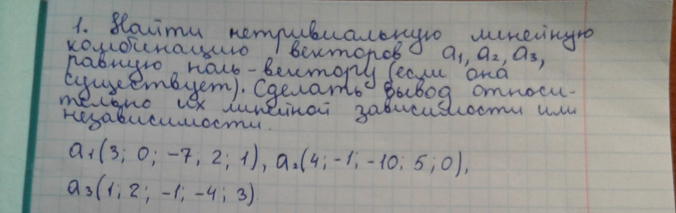 1. Найти нетривиальную линейную
комбинацию векторов a₁, a₂, a₃,
равную ноль-вектору (если она
существует). Сделать вывод относи-
тельно их линейной зависимости или
независимости.
a₁(3; 0; -7; 2; 1), a₂(4; -1; -10; 5; 0),
a₃(1; 2; -1; -4; 3)